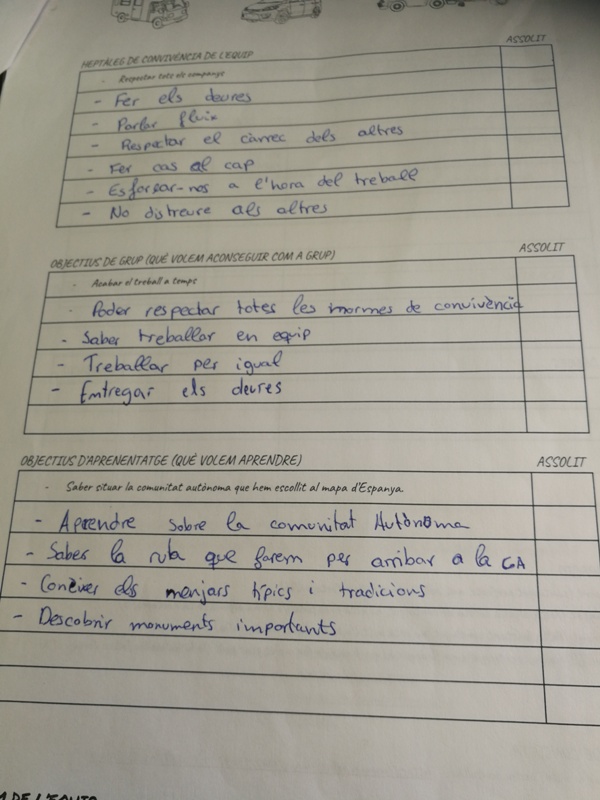 ASSOLIT
HEPTÀLEG DE CONVIVÈNCIA DE L'EQUIP
- Respectar tots els companys
- Fer els deures
- Parlar fluix
- Respectar el càrrec dels altres
- Fer cas al cap
- Esforsar-nos a l'hora del treball
- No distreure als altres
OBJECTIUS DE GRUP (QUÈ VOLEM ACONSEGUIR COM A GRUP) ASSOLIT
- Acabar el treball a temps
- Poder respectar totes les normes de convivència
- Saber treballar en equip
- Treballar per igual
- Entregar els deures
OBJECTIUS D'APRENENTATGE (QUÈ VOLEM APRENDRE) ASSOLIT
- Saber situar la comunitat autònoma que hem escollit al mapa d'Espanya.
- Aprendre sobre la comunitat Autònoma
- Saber la ruta que farem per arribar a la CA
- Conèixer els menjars típics i tradicions
- Descobrir monuments importants
DE L'EQUIP